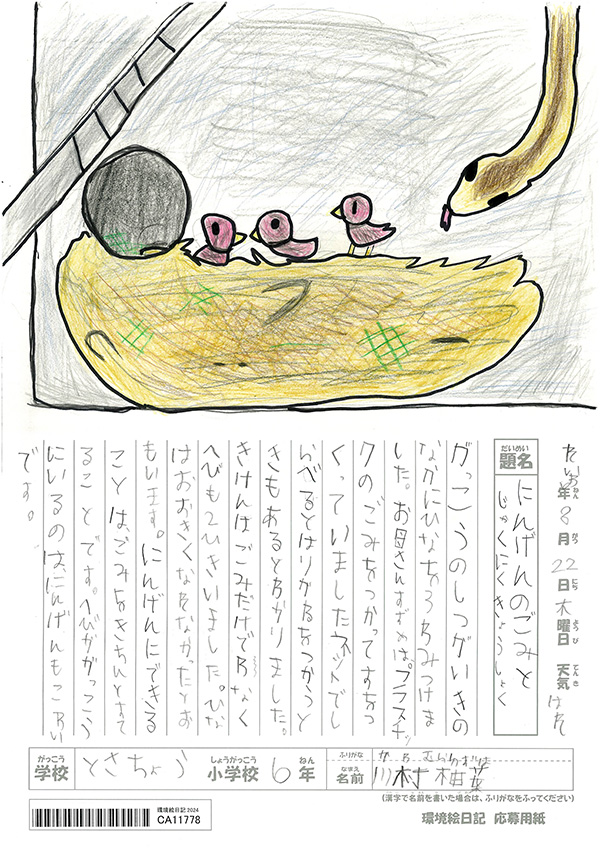 年8月22日木曜日 天気 はれ
がつ にち ようび てんき
だいめい
題名
にんげんのごみと
じゃくにくきょうしょく
がっこうのしつがいきの
なかにひなを3わみつけま
した。お母さんすずめは。プラスチッ
クのごみをつかってすをつ
くっていましたネットでし
らべるとはりがねをつかうと
きもあるとわかりました。
きけんはごみだけでわなく
へびも2ひきいました。ひな
はおおきくなれなかったとお
もいます。にんげんにできる
ことは、ごみをきちんとすて
ることです。へびががっこう
にいるのはにんげんもこわい
です。
がっこう しょうがっこう ねん ふりがな かわむら
学校 とさちょう 小学校 6年 なまえ 名前 川村
(漢字で名前を書いた場合は、ふりがなをふってください)
環境絵日記2024
CA11778
環境絵日記 応募用紙